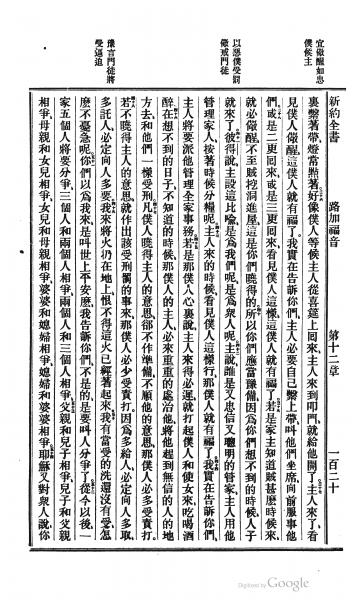 新約全書 路加福音 第十二章 一百二十
宜儆醒如忠
僕候主
裏繫著帶、燈當點著、好像僕人等候主人從喜筵上回來、主人來到叩門、就給他開了。主人來了、看
見僕人儆醒、這僕人就有福了。我實在告訴你們、主人必要自己繫上帶、叫他們坐席、向前服事他
們。或是二更回來、或是三更回來、看見僕人這樣、這僕人就有福了。若是家主知道賊甚麼時候來、
就必儆醒、不至賊挖洞進屋、這是你們曉得的。所以你們應當豫備、因為你們想不到的時候、人子
以惡僕受罰
儆戒門徒
就來了。彼得說、主設這比喻、是為我們呢、是為眾人呢。主說、誰是又忠信、又聰明的管家、主人用他
管理家人、按著時候分糧呢。主人來的時候、看見僕人這樣行、那僕人就有福了。我實在告訴你們、
主人將要派他管理全家事務。若是那僕人心裏說、主人來得必遲、就打起僕人和使女來、吃喝酒
醉、在想不到的日子、不知道的時候、那僕人的主人、必來重重的處治他、將他趕到無信的人的地
方去、和他們一樣受刑。僕人曉得主人的意思、卻不作準備、不順他的意思、那僕人必多受責打。
若不曉得主人的意思、就作出該受刑罰的事來、那僕人必少受責打。因為多給人、必定向人多取、
豫言門徒將
受逼迫
多託人、必定向人多要。我來將火扔在地上、恨不得這火已經著起來。我有當受的洗還沒有受、怎
麼不憂急呢。你們以為我來是叫世上平安麼、我告訴你們、不是的、是要叫人分爭了。從今以後、一
家五個人將要分爭、三個人和兩個人相爭、兩個人和三個人相爭、父親和兒子相爭、兒子和父親
相爭、母親和女兒相爭、女兒和母親相爭、婆婆和媳婦相爭、媳婦和婆婆相爭。耶穌又對眾人說、你
Digitized by Google